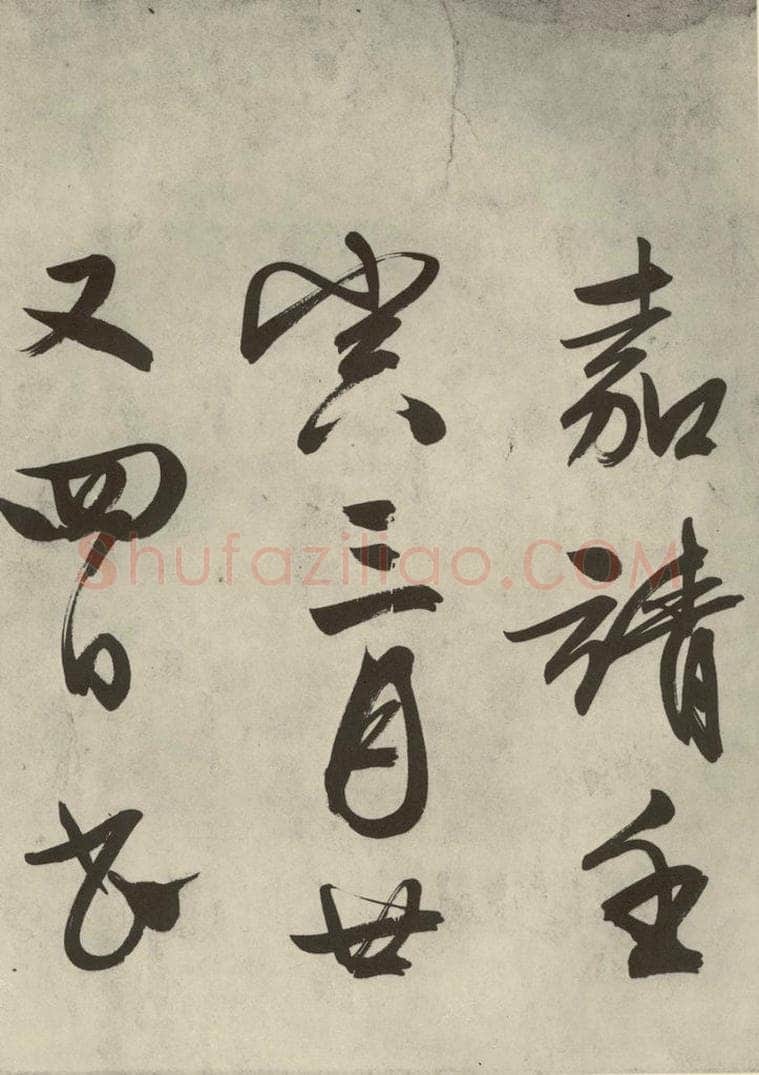 嘉靖壬
寅三月廿
又四日書
Shufaziliao.COM